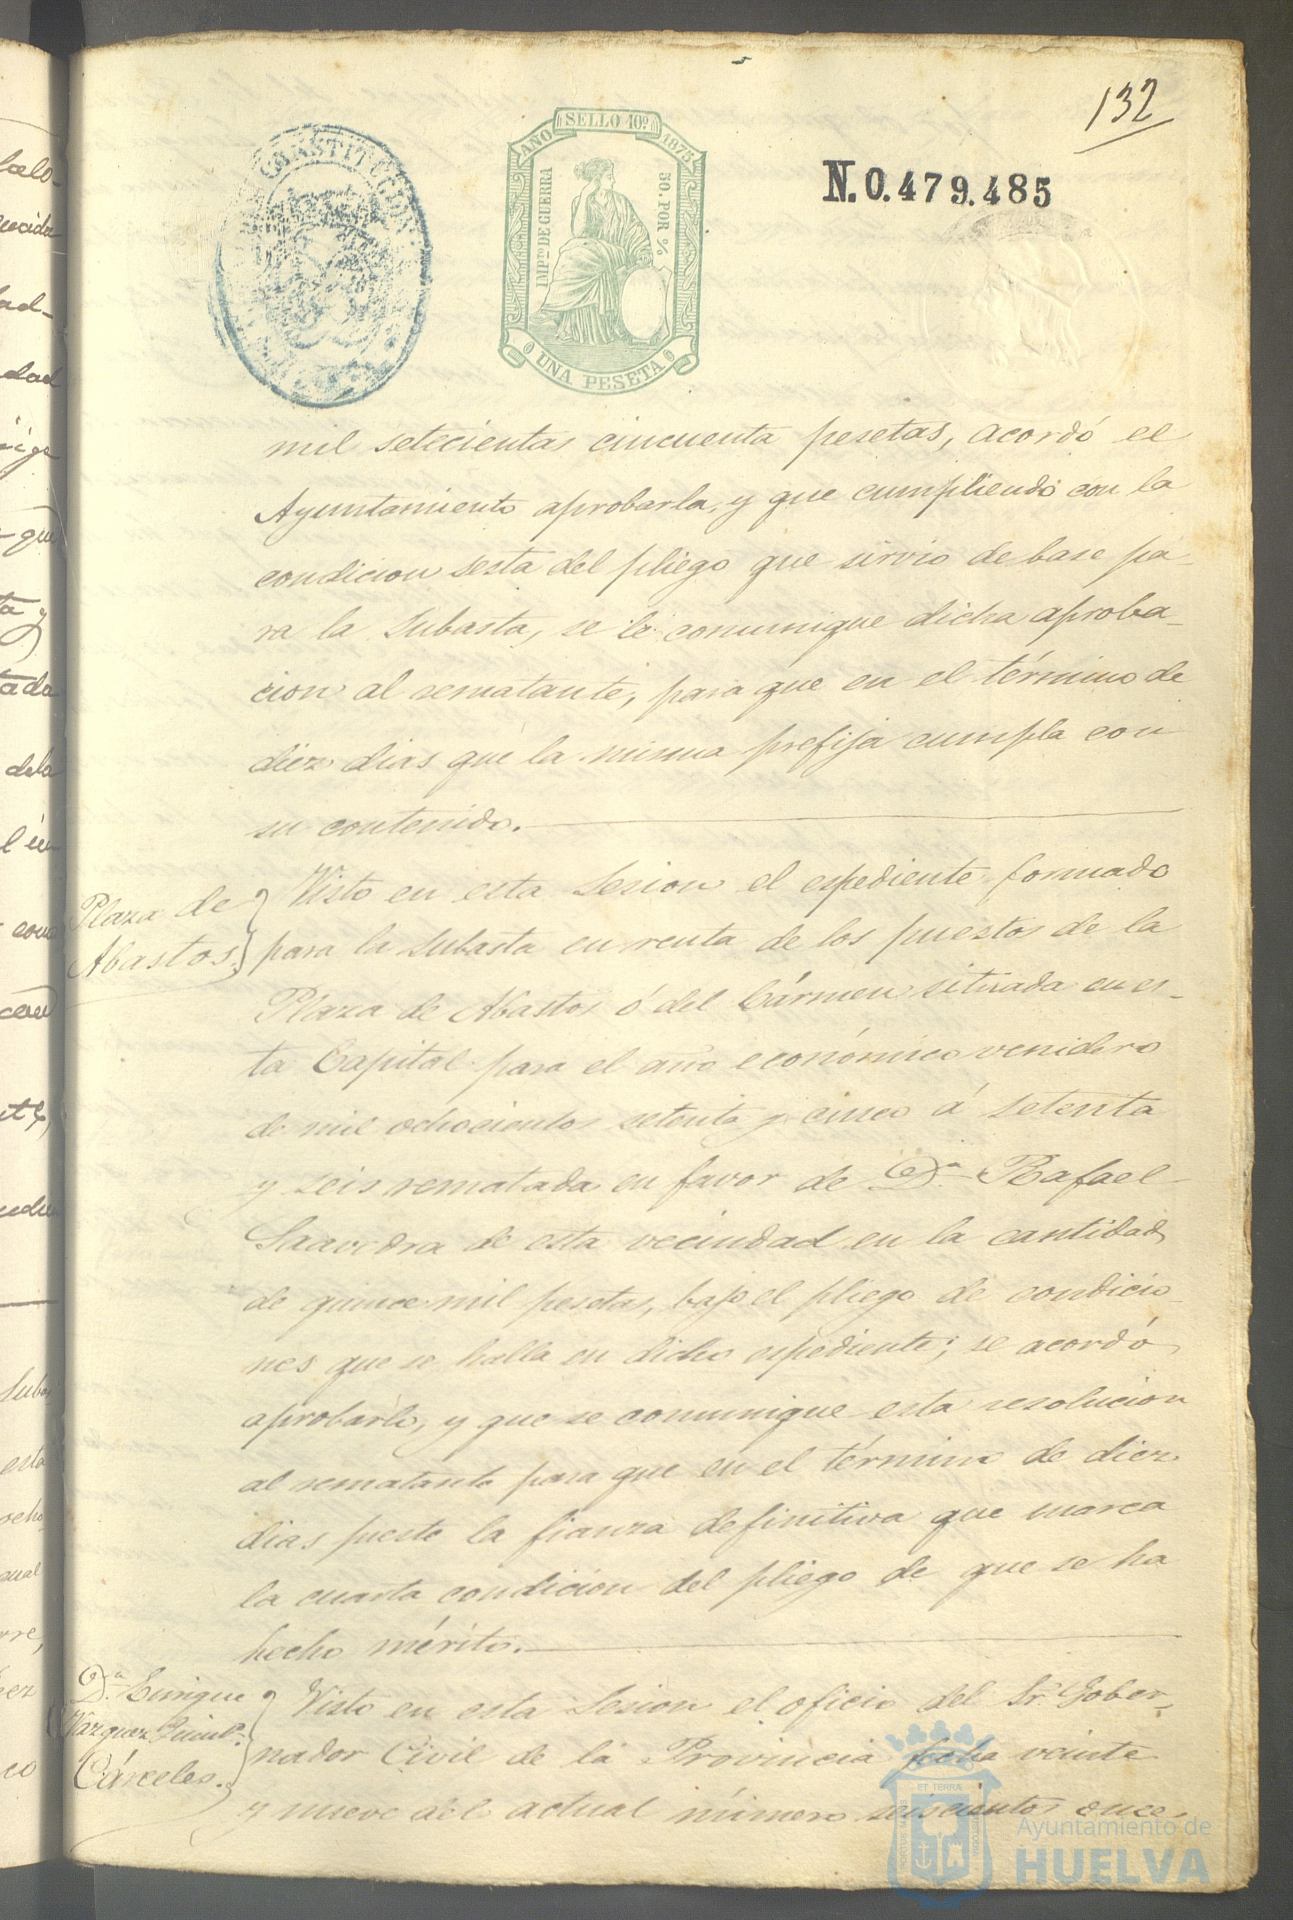 132
CONSTITUCION
SELLO 10º
AÑO 1875
IMPTO DE GUERRA
50. POR %
UNA PESETA
N.0.479.485
mil setecientas cincuenta pesetas, acordó el
Ayuntamiento aprobarla, y que cumpliendo con la
condicion sesta del pliego que sirvio de base pa-
ra la Subasta, se le comunique dicha aproba-
cion al rematante, para que en el término de
diez dias que la misma prefija cumpla con
su contenido.
Plaza de
Abastos.
Visto en esta Sesion el espediente formado
para la subasta en renta de los puestos de la
Plaza de Abastos ó del Cármen situada en es-
ta Capital para el año económico venidero
de mil ochocientos setenta y cinco á setenta
y seis rematada en favor de Dn. Rafael
Saavedra de esta vecindad en la cantidad
de quince mil pesetas, bajo el pliego de condicio-
nes que se halla en dicho espediente; se acordó
aprobarlo, y que se comunique esta resolucion
al rematante para que en el término de diez
dias preste la fianza definitiva que marca
la cuarta condicion del pliego de que se ha
hecho mérito.
Dn. Enrique
Vazquez
Cárceles.
Visto en esta Sesion el oficio del Sr. Gober-
nador Civil de la Provincia fecha veinte
y nueve del actual número seiscientos once,
ET TERRA
Ayuntamiento de
HUELVA